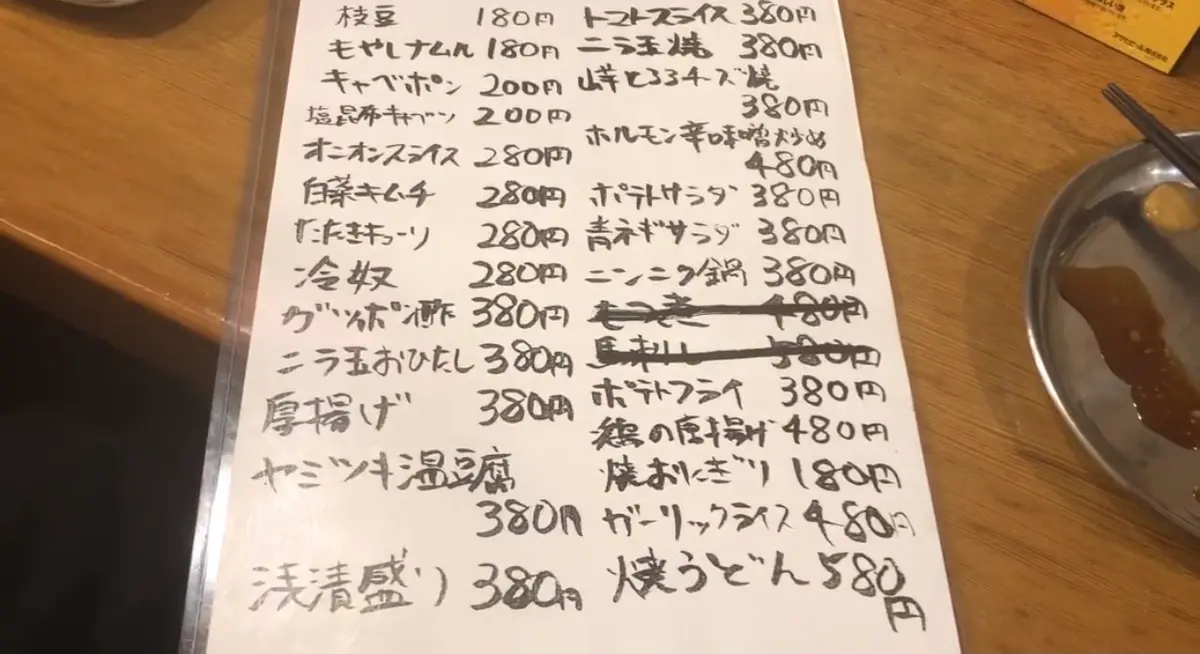 枝豆 180円
もやしナムル 180円
キャベポン 200円
塩昆布キャベツ 200円
オニオンスライス 280円
白菜キムチ 280円
たたきキューリ 280円
冷奴 280円
ガツポン酢 380円
ニラ玉おひたし 380円
厚揚げ 380円
ヤミツキ温豆腐
380円
浅漬盛り 380円
トマトスライス 380円
ニラ玉焼 380円
山芋とろろチーズ焼
380円
ホルモン辛味噌炒め
480円
ポテトサラダ 380円
青ネギサラダ 380円
ニンニク鍋 380円
もつ 480円
馬刺し 580円
ポテトフライ 380円
鶏の唐揚げ 480円
焼おにぎり 180円
ガーリックライス 480円
焼うどん 580
円
アサヒビール株式会社